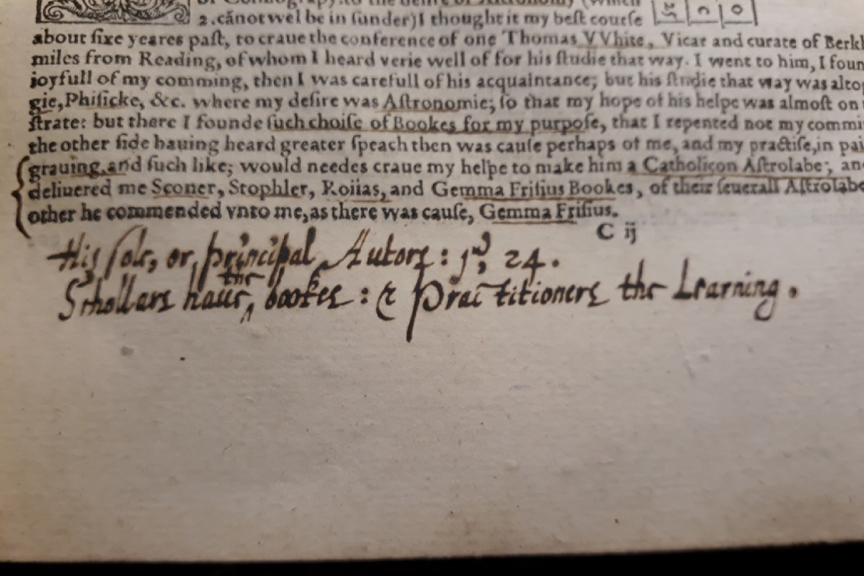 of Cosmography, to the
2. cānot wel be in sunder) I thought it my best course
about sixe yeares past, to craue the conference of one Thomas VVhite, Vicar and curate of
miles from Reading, of whom I heard verie well of for his studie that way. I went to him, I foun
ioyfull of my comming, then I was carefull of his acquaintance; but his studie that way was alto
gie, Phisicke, &c. where my desire was Astronomie; so that my hope of his helpe was almost on
strate: but there I founde such choise of Bookes for my purpose, that I repented not my commi
the other side hauing heard greater speach then was cause perhaps of me, and my practise, in pai
grauing, and such like; would needes craue my helpe to make him a Catholicon Astrolabe, an
deliuered me Sconer, Stophler, Roiias, and Gemma Frisius Bookes, of their seuerall Astrolabe
other he commended vnto me, as there was cause, Gemma Frisius.
C ij
His sole, or, principal Autors: 24.
the
Schollars haue, bookes: & Practitioners the Learning.